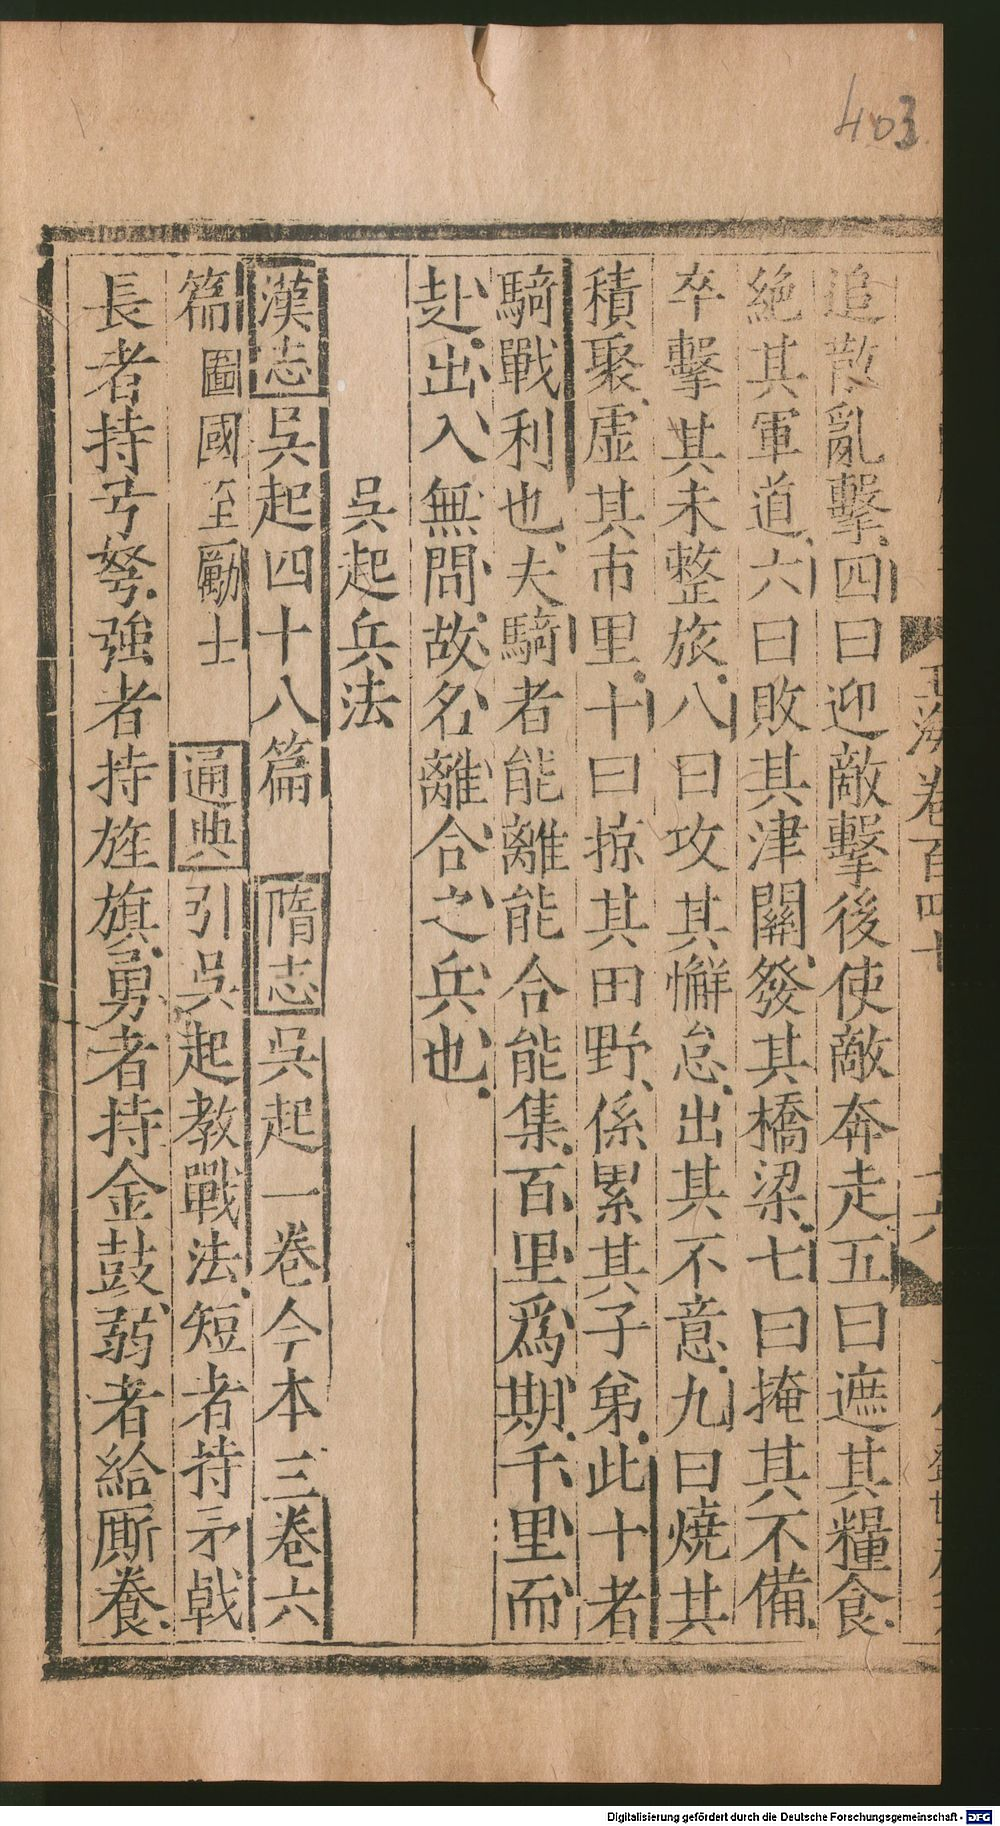 403
玉海卷百四十
十六
追散亂擊四曰迎敵擊後使敵奔走五曰遮其糧食
絕其軍道六曰敗其津關發其橋梁七曰掩其不備
卒擊其未整旅八曰攻其懈怠出其不意九曰燒其
積聚虛其市里十曰掠其田野係累其子弟此十者
騎戰利也夫騎者能離能合能集百里爲期千里而
赴出入無間故名離合之兵也
吳起兵法
漢志吳起四十八篇 隋志吳起一卷今本三卷六
篇圖國至勵士 通典引吳起教戰法短者持矛戟
長者持弓弩強者持旌旗勇者持金鼓弱者給厮養
Digitalisierung gefördert durch die Deutsche Forschungsgemeinschaft - DFG